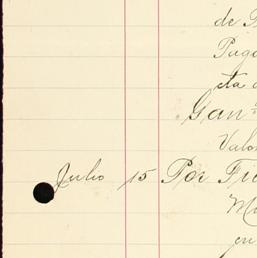 de
Paga
cta
Gan
Valo
Julio 15 Por
en